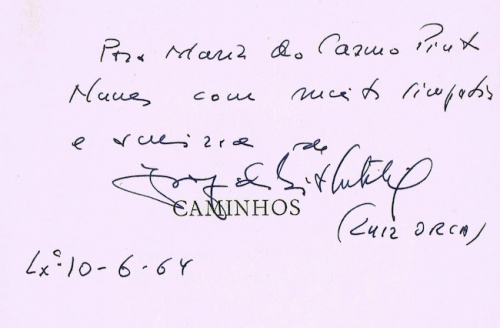 Para Maria do Carmo Pinto
Nunes com muita simpatia
e amizade de
CAMINHOS
(LUIZ ORCA)
Lxª 10-6-64